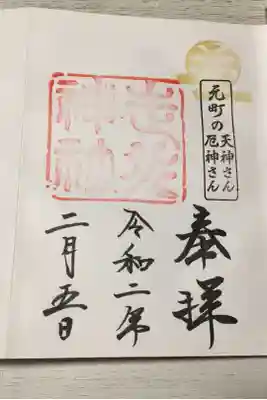 元町の
天神さん
厄神さん
奉拝
令和二年
二月五日
走水
神社